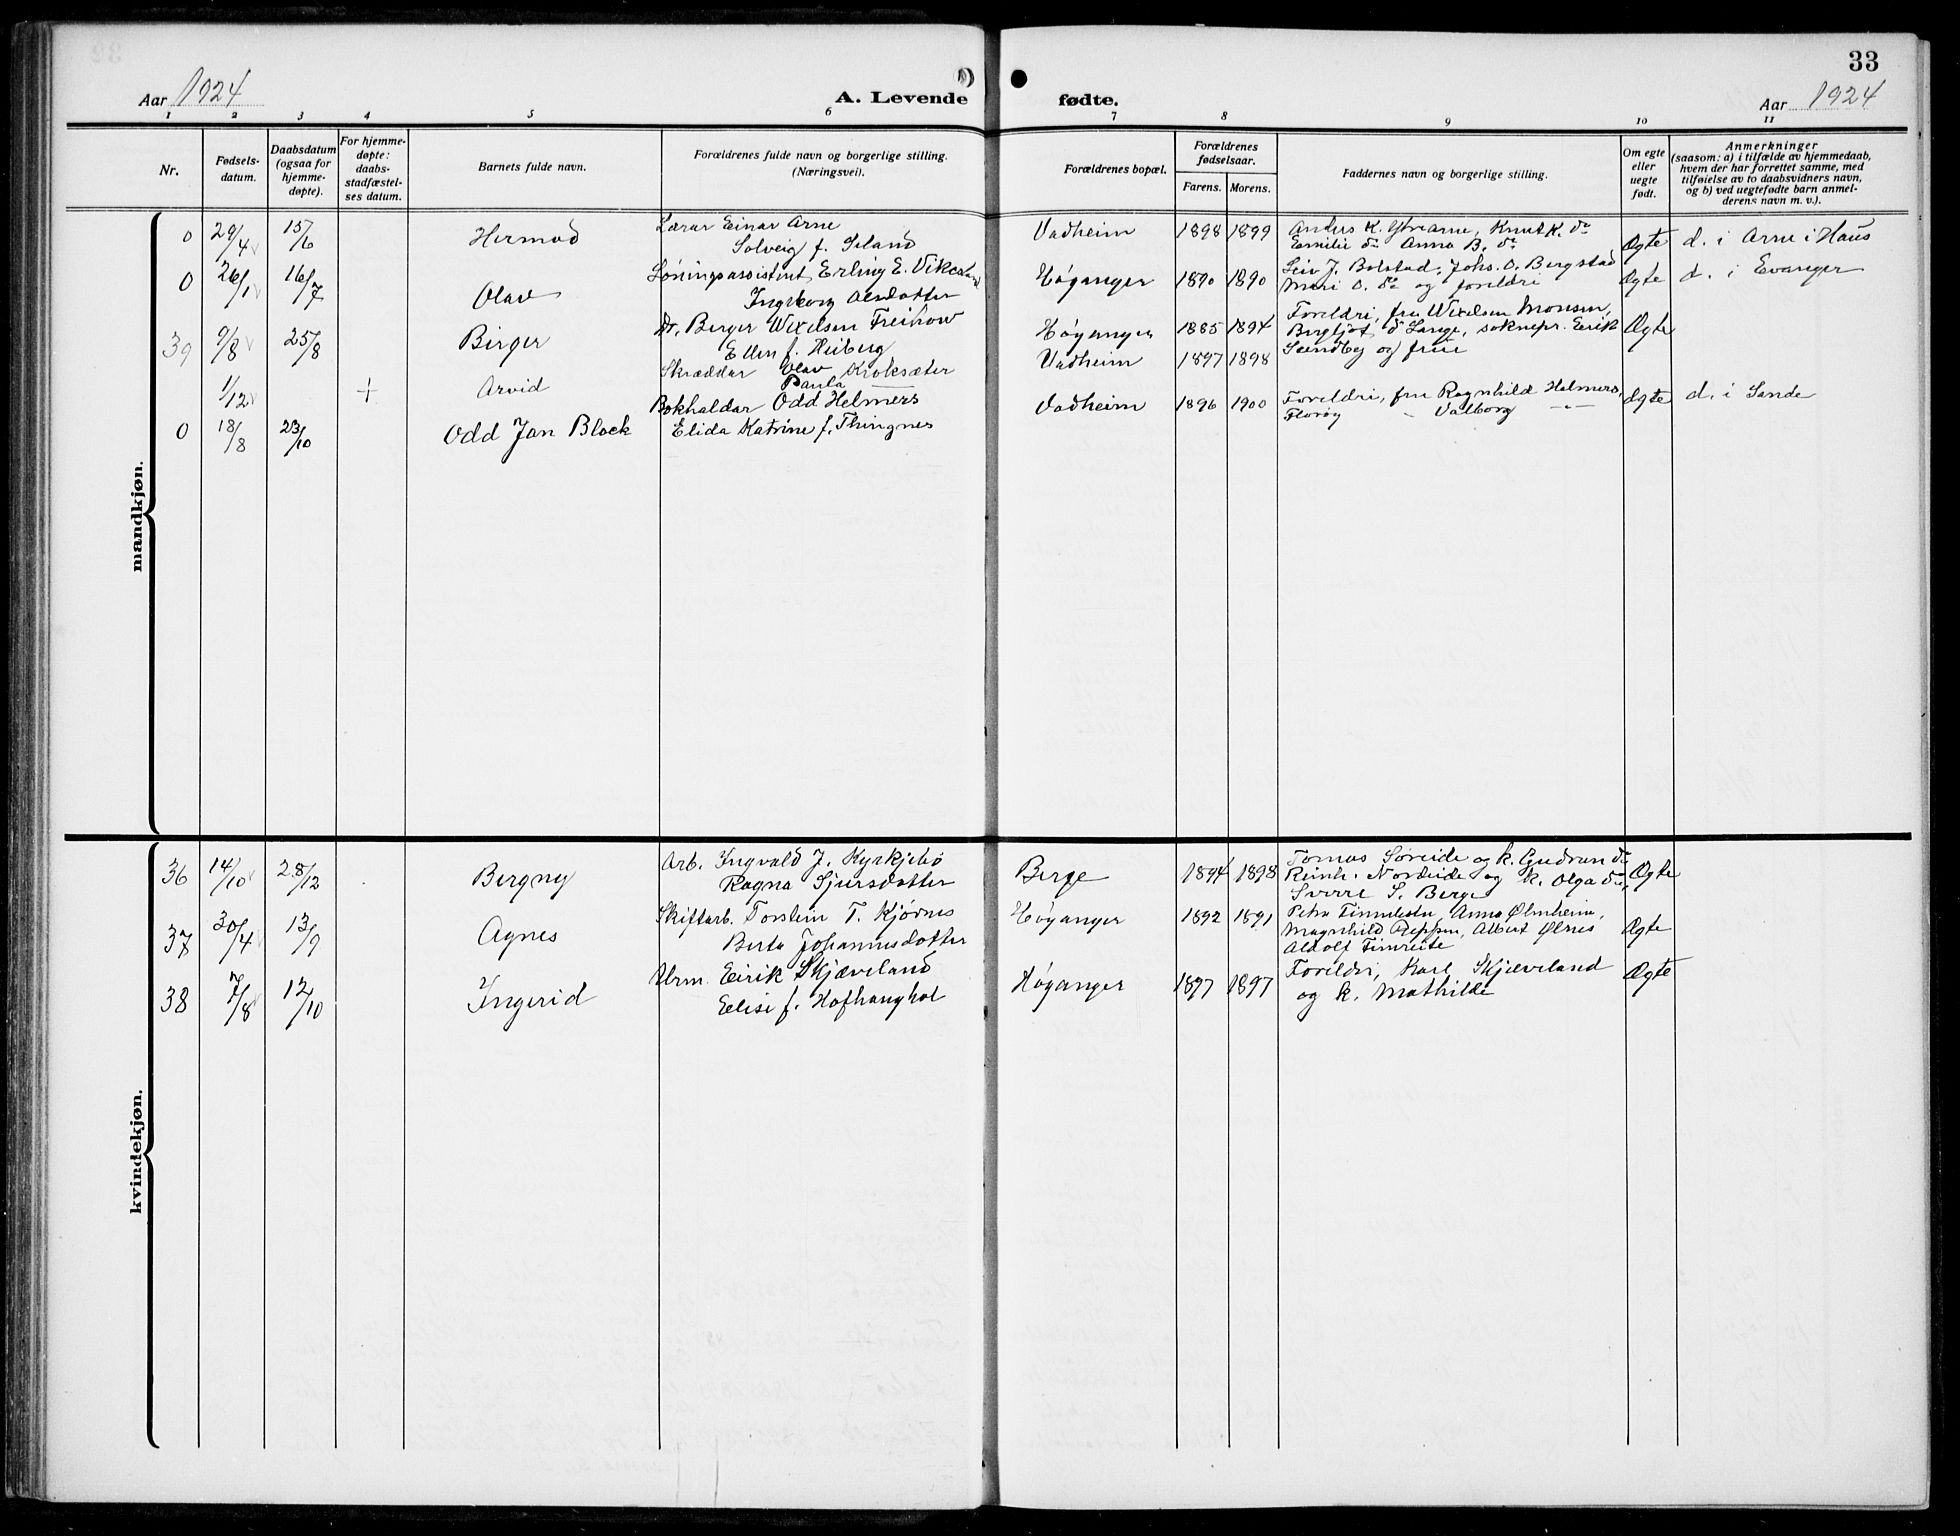 33
Aar 1924
A. Levende fødte.
Aar 1924
1 2 3 4 5 6 7 8 9 10 11
Nr.
Fødsels-
datum.
Daabsdatum
(ogsaa for
hjemme-
døpte).
For hjemme-
døpte:
daabs-
stadfæstel-
ses datum.
Barnets fulde navn.
Forældrenes fulde navn og borgerlige stilling.
(Næringsvei).
Forældrenes bopæl.
Forældrenes
fødselsaar.
Farens. Morens.
Faddernes navn og borgerlige stilling.
Om egte
eller
uegte
født.
Anmerkninger
(saasom: a) i tilfælde av hjemmedaab,
hvem der har forrettet samme, med
tilføielse av to daabsvidners navn,
og b) ved uegtefødte barn anmel-
derens navn m. v.).
mandkjøn.
0 29/4 15/6 Hermod
Lærar Einar Arne
Solveig f. Seland
Vadheim 1898 1899
Anders K. Ytre Arne, Knut K. do
Emilie do Anna B. do
Ægte d. i Arne i Haus
0 26/1 16/7 Olav
Løningsassistent Erling E. Vikesland
Ingeborg Olsdotter
Høyanger 1890 1890
Leiv J. Bolstad, Johs. O. Bergstad
Mari O. do og foreldri
Ægte d. i Evanger
39 9/8 25/8 Birger
Dr. Berger Wexelsen Freihow
Ellen f. Heiberg
Høyanger 1885 1894
Foreldri, fru Wexelsen Monsen,
Bergljot d Lange, soknepr. Eerik
Sendby og frue
Ægte
1/12 + Arvid
Skræddar Olav Kroksæter
Paula —
Vadheim 1897 1898
0 18/8 23/10 Odd Jan Block
Bokhaldar Odd Helmers
Elida Katrine f. Thingnes
Vadheim 1896 1900
Foreldri, fru Ragnhild Helmers,
Florøy " Valborg "
Ægte d. i Sande
kvindekjøn.
36 14/10 28/12 Bergny
Arb. Ingvald J. Kyrkjebø
Ragna Sjursdotter
Berge 1894 1898
Tomas Søreide og k. Gudrun do
Reinh. Nordeide og k. Olga do,
Sverre S. Berge
Ægte
37 30/4 13/9 Agnes
Skiftarb. Torstein T. Kjørnes
Berta Johannesdotter
Høyanger 1892 1891
Petra Timrlestu, Anna Ølmheim,
Magnhild Reppen, Albert Ølnes
Aldolf Timreite
Ægte
38 7/8 12/10 Ingerid
Urm. Eirik Skjæveland
Eelise f. Hofhanghol
Høyanger 1897 1897
Foreldri, Karl Skjæveland
og k. Mathilde
Ægte